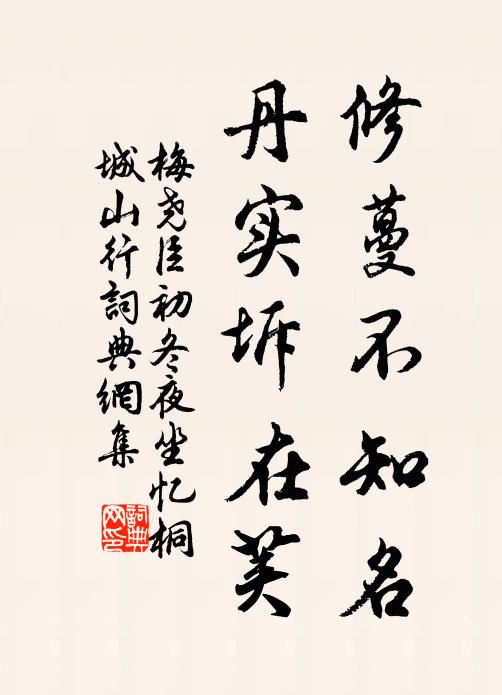 修蔓不知名
丹实坼在荚
梅尧臣初冬夜坐忆桐
城山行詞典網集
詞典
网印